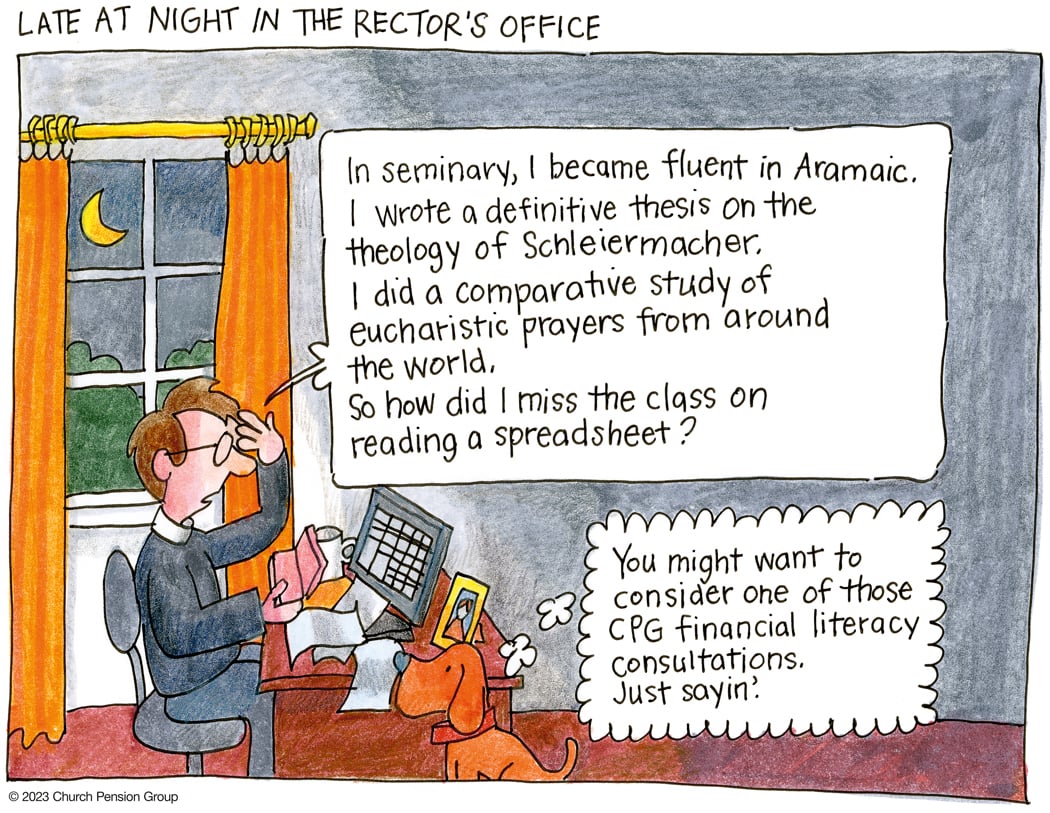 LATE AT NIGHT IN THE RECTOR'S OFFICE
In seminary, I became fluent in Aramaic.
I wrote a definitive thesis on the
theology of Schleiermacher.
I did a comparative study of
eucharistic prayers from around
the world.
So how did I miss the class on
reading a spreadsheet?
You might want to
consider one of those
CPG financial literacy
consultations.
Just sayin'.
© 2023 Church Pension Group